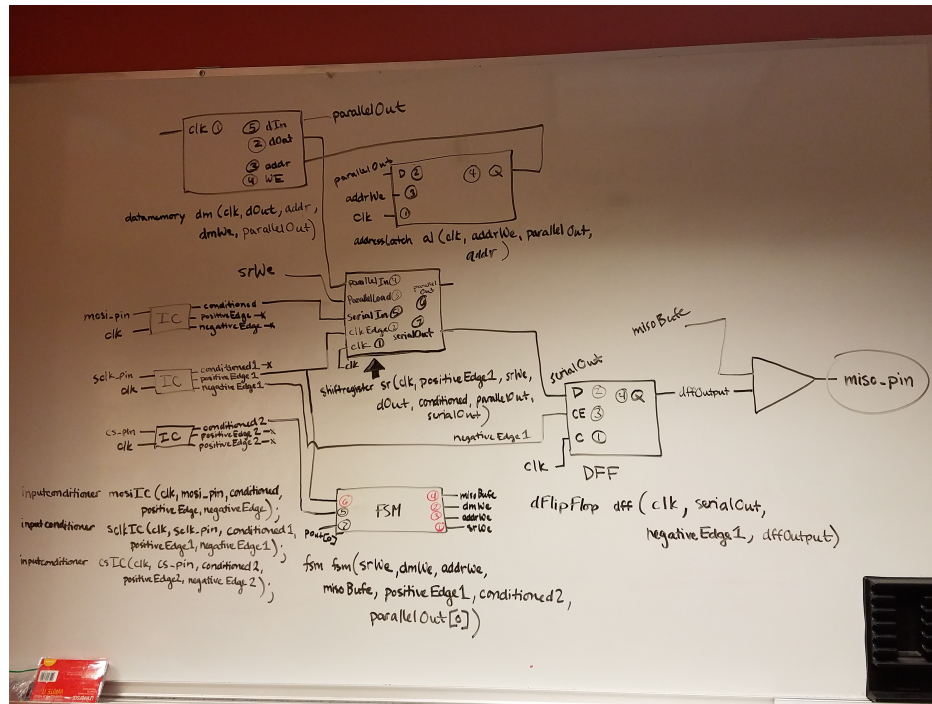 parallelOut
clk ① ⑤ dIn
② dOut
③ addr
④ WE
datamemory dm (clk, dOut, addr,
dmWe, parallelOut)
parallelOut D ② ④ Q
addrWe ③
Clk ①
addressLatch al (clk, addrWe, parallelOut,
addr)
srWe
parallelIn ④ parallel
Out
ParallelLoad ③
SerialIn ⑤
clkEdge ② serialOut
clk ①
clk
mosi-pin IC conditioned
positiveEdge-x
clk negativeEdge-x
sclk_pin IC conditioned1-x
positiveEdge1
clk negativeEdge1
cs-pin IC conditioned2
positiveEdge2-x
clk positiveEdge2-x
shiftregister sr(clk, positiveEdge1, srWe,
dOut, conditioned, parallelOut,
serialOut)
negativeEdge1
misoBufe
serialOut
D ② ④ Q dffOutput
CE ③
C ①
clk
DFF
miso_pin
dFlipFlop dff (clk, serialOut,
negativeEdge1, dffOutput)
inputconditioner mosiIC (clk, mosi_pin, conditioned,
positiveEdge, negativeEdge);
inputconditioner sclkIC (clk, sclk_pin, conditioned1,
positiveEdge1, negativeEdge1);
inputconditioner csIC(clk, cs-pin, conditioned2,
positiveEdge2, negativeEdge2);
⑥ FSM ④ misoBufe
⑤ ② dmWe
③ addrWe
pout[0] ⑦ ① srWe
fsm fsm(srWe, dmWe, addrWe,
misoBufe, positiveEdge1, conditioned2,
parallelOut[0])